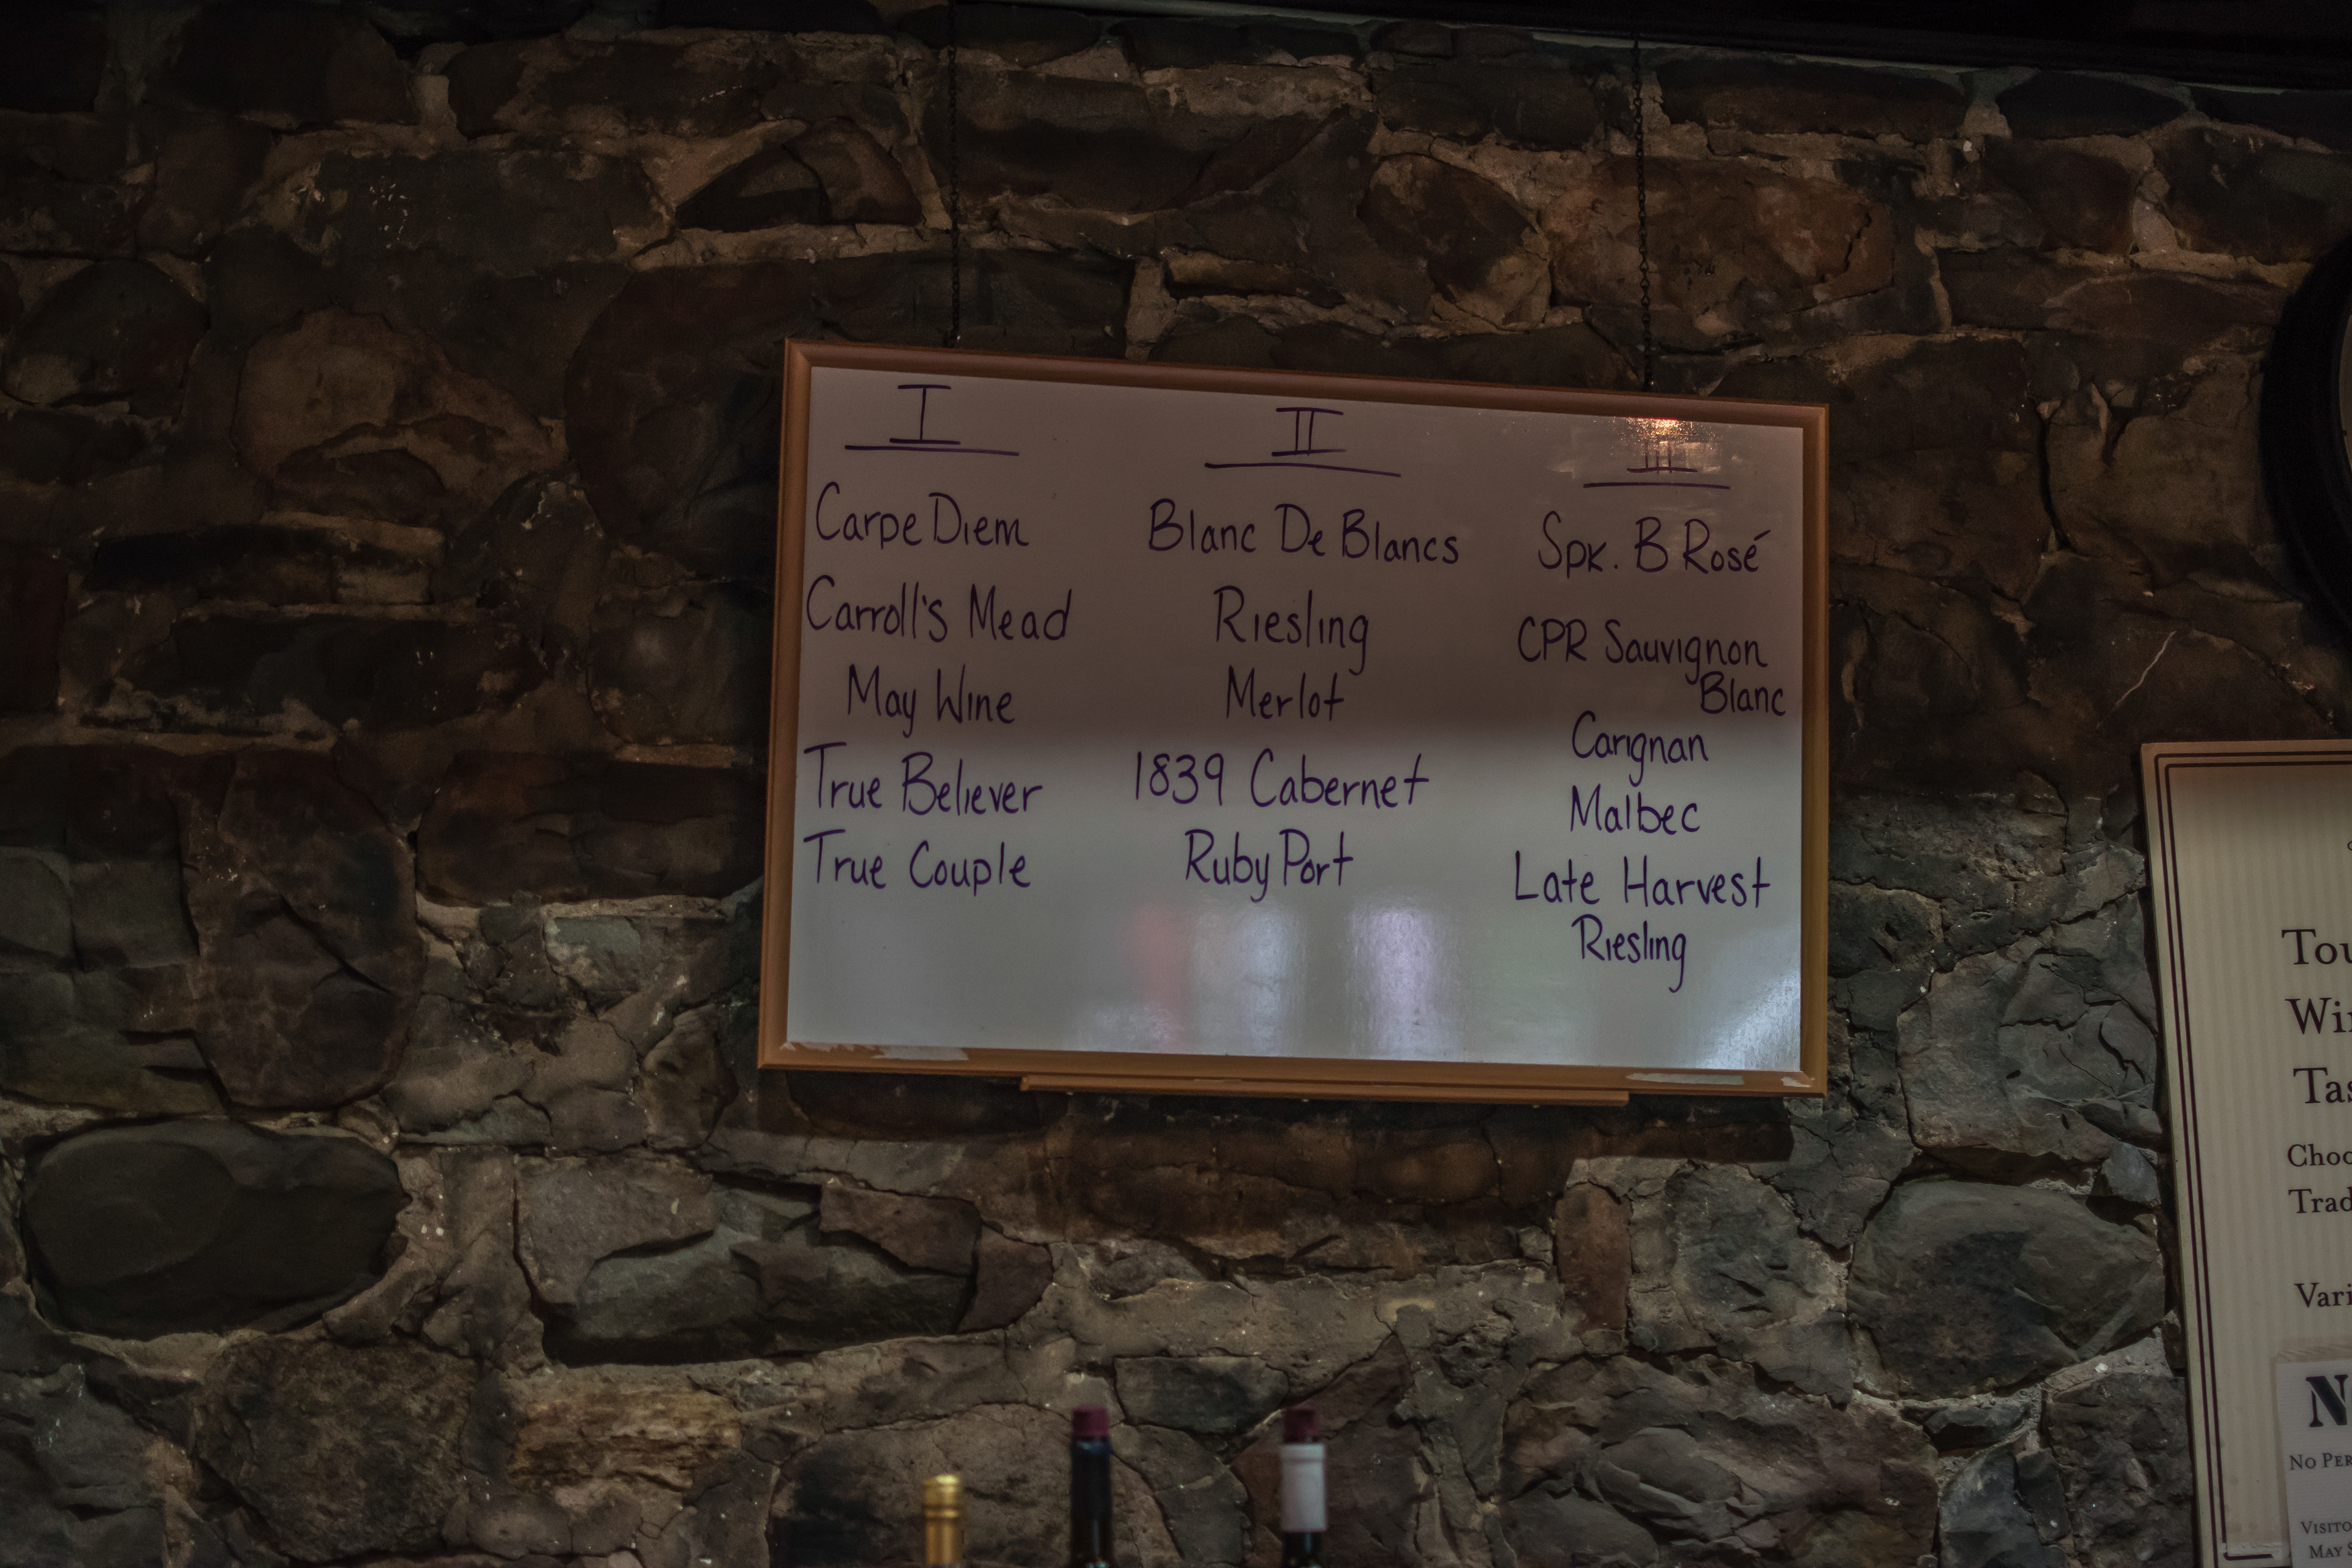 I
Carpe Diem
Carroll's Mead
May Wine
True Believer
True Couple
II
Blanc De Blancs
Riesling
Merlot
1839 Cabernet
Ruby Port
III
Spk. B Rosé
CPR Sauvignon
Blanc
Carignan
Malbec
Late Harvest
Riesling
No
May